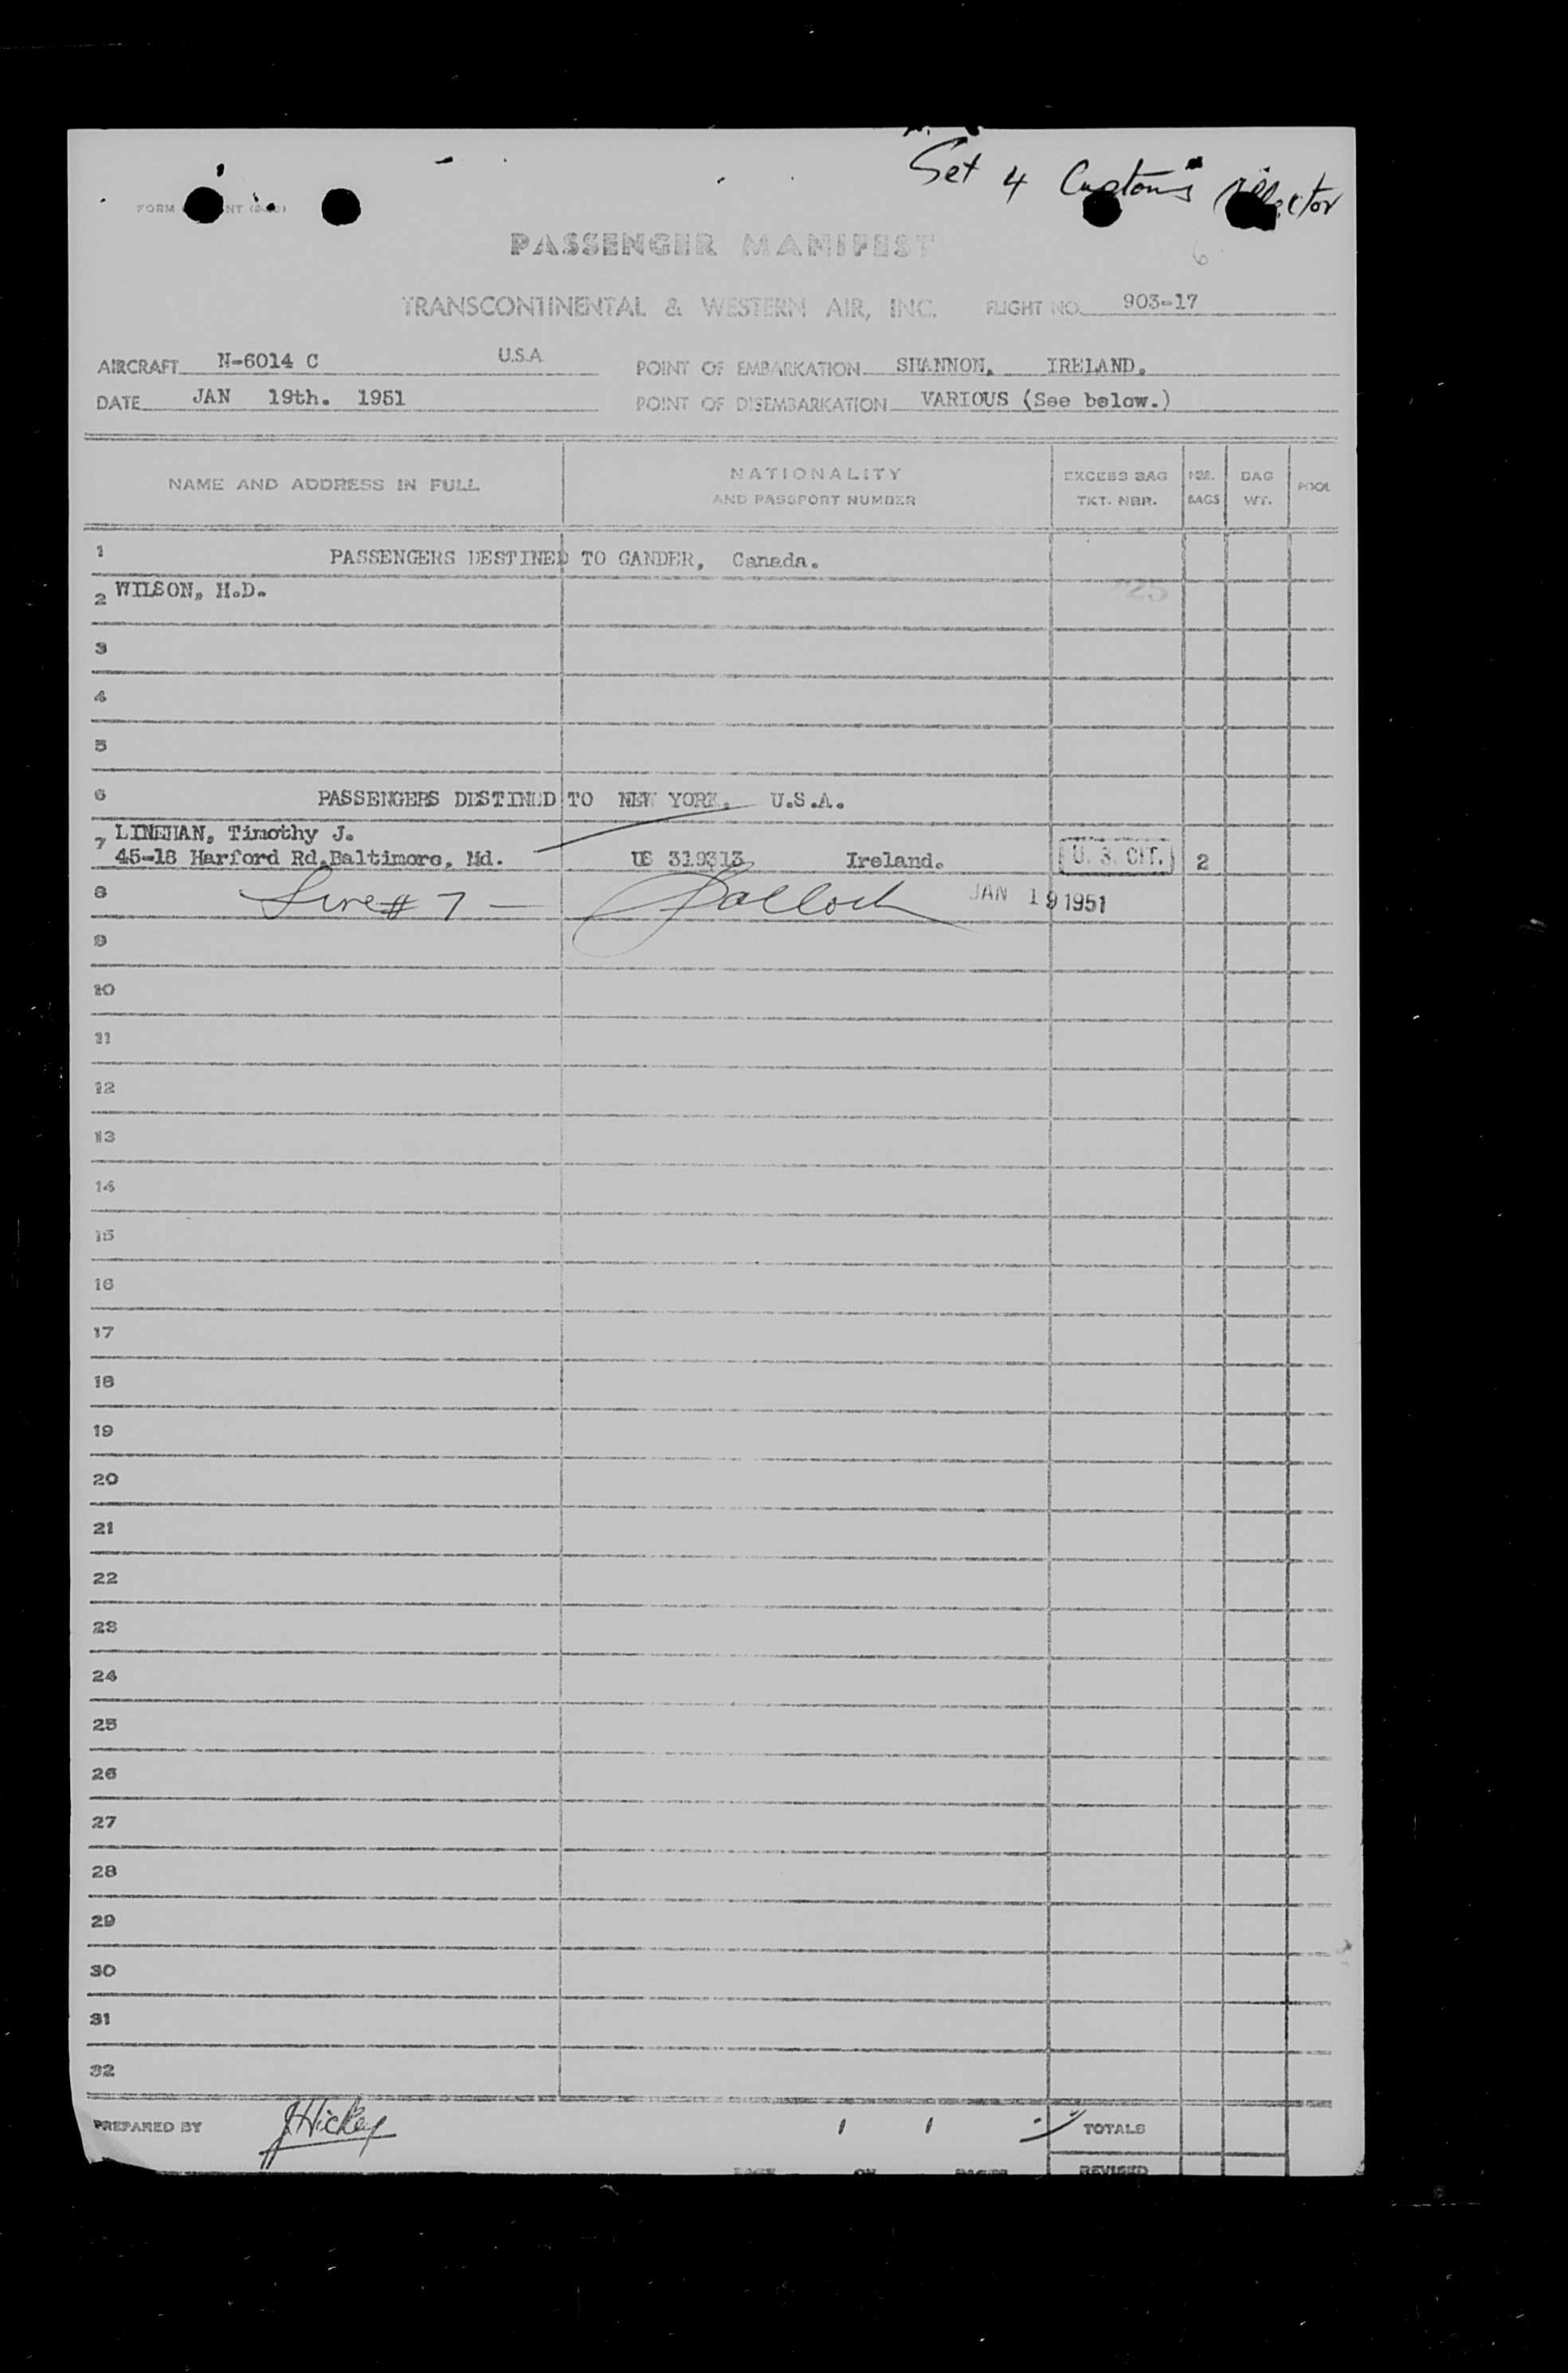 Set 4 Customs Collector
FORM NT
6
PASSENGER MANIFEST
TRANSCONTINENTAL & WESTERN AIR, INC. FLIGHT NO. 903-17
AIRCRAFT N-6014 C U.S.A. POINT OF EMBARKATION SHANNON, IRELAND.
DATE JAN 19th. 1951 POINT OF DISEMBARKATION VARIOUS (See below.)
NAME AND ADDRESS IN FULL NATIONALITY AND PASSPORT NUMBER EXCESS BAG TKT. NBR. NBR. BAGS BAG WT. POOL
1 PASSENGERS DESTINED TO GANDER, Canada.
2 WILSON, H.D. 225
3
4
5
6 PASSENGERS DESTINED TO NEW YORK. U.S.A.
7 LINEHAN, Timothy J.
45-18 Harford Rd.Baltimore, Md. US 319313 Ireland. U. S. CIT. 2
8 Line # 7 — JAN 19 1951
9
10
11
12
13
14
15
16
17
18
19
20
21
22
23
24
25
26
27
28
29
30
31
32
PREPARED BY JHickey 1 1 TOTALS
PAGE OF PAGES REVISED